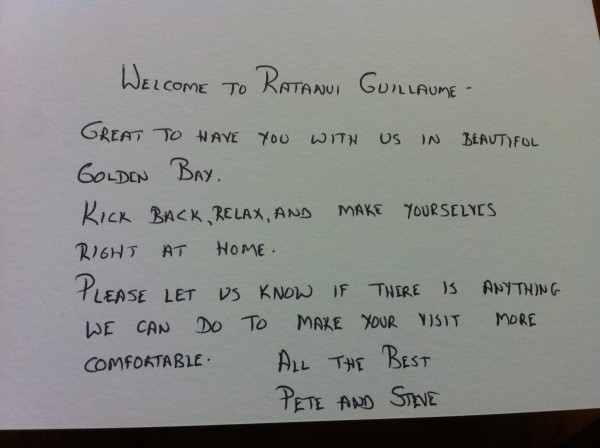 WELCOME TO RATANUI GUILLAUME -
GREAT TO HAVE YOU WITH US IN BEAUTIFUL
GOLDEN BAY.
KICK BACK, RELAX, AND MAKE YOURSELVES
RIGHT AT HOME.
PLEASE LET US KNOW IF THERE IS ANYTHING
WE CAN DO TO MAKE YOUR VISIT MORE
COMFORTABLE. ALL THE BEST
PETE AND STEVE